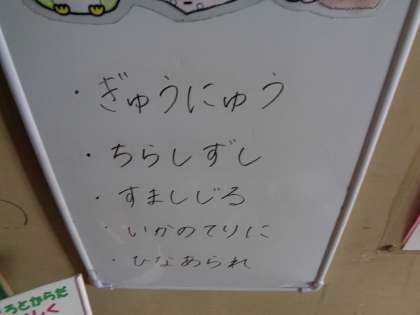 ・ぎゅうにゅう
・ちらしずし
・すましじる
・いかのてりに
・ひなあられ
ろとからだ